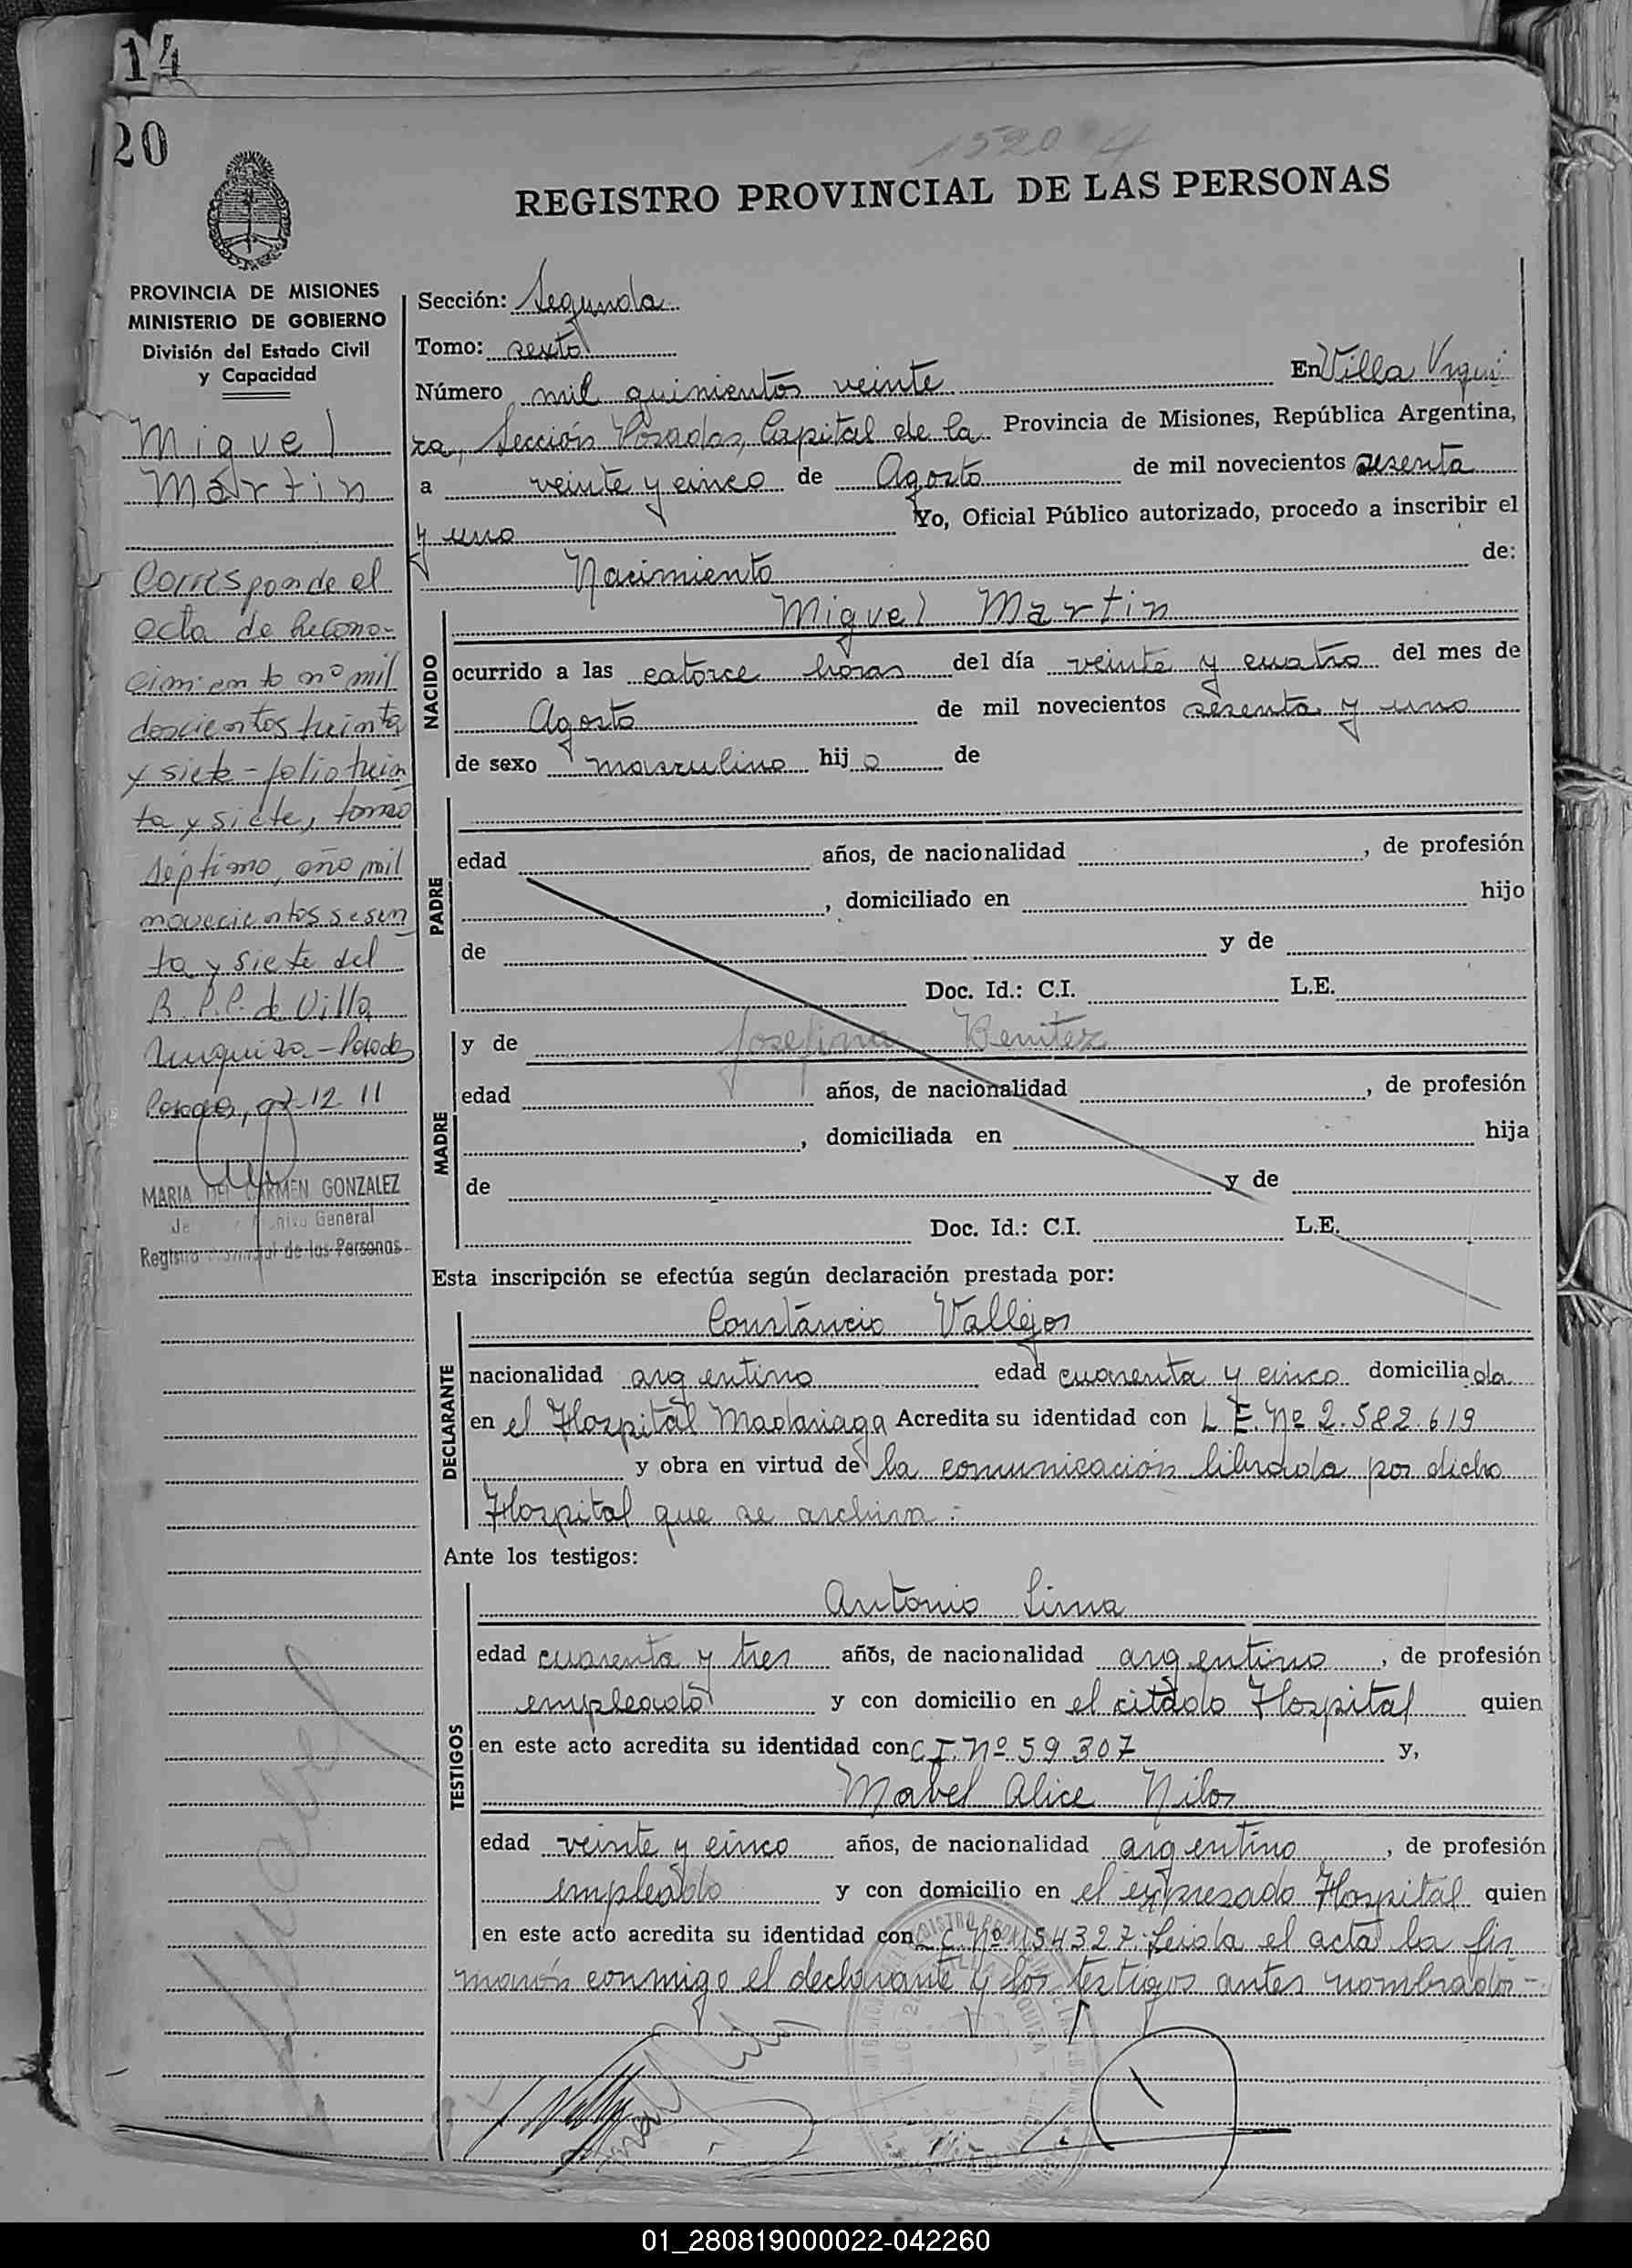 14
20
1520
REGISTRO PROVINCIAL DE LAS PERSONAS
PROVINCIA DE MISIONES
MINISTERIO DE GOBIERNO
División del Estado Civil
y Capacidad
Miguel
Martin
Corresponde el
acta de Recono-
cimiento nº mil
doscientos treinta
y siete - folio trein
ta y siete, tomo
séptimo, año mil
novecientos sesen
ta y siete del
R. P. P. de Villa
Urquiza - Posadas
Posadas, 07-12-11
MARIA DEL CARMEN GONZALEZ
Archivo General
Registro Provincial de las Personas
Sección: Segunda
Tomo: sexto
Número mil quinientos veinte En Villa Urqui
za, Sección Posadas, Capital de la Provincia de Misiones, República Argentina,
a veinte y cinco de Agosto de mil novecientos sesenta
y uno Yo, Oficial Público autorizado, procedo a inscribir el
Nacimiento de:
NACIDO
Miguel Martin
ocurrido a las catorce horas del día veinte y cuatro del mes de
Agosto de mil novecientos sesenta y uno
de sexo masculino hij o de
PADRE
edad años, de nacionalidad , de profesión
, domiciliado en hijo
de y de
Doc. Id.: C.I. L.E.
MADRE
y de Josefina Benitez
edad años, de nacionalidad , de profesión
, domiciliada en hija
de y de
Doc. Id.: C.I. L.E.
Esta inscripción se efectúa según declaración prestada por:
DECLARANTE
Constáncio Vallejos
nacionalidad argentino edad cuarenta y cinco domicilia do
en el Hospital Madariaga Acredita su identidad con L.E. Nº 2.582.619
y obra en virtud de la comunicación librada por dicho
Hospital que se archiva.-
Ante los testigos:
TESTIGOS
Antonio Lima
edad cuarenta y tres años, de nacionalidad argentino, de profesión
empleado y con domicilio en el citado Hospital quien
en este acto acredita su identidad con C.I. Nº 59.307 y,
Mabel Alice Nilos
edad veinte y cinco años, de nacionalidad argentino, de profesión
empleado y con domicilio en el expresado Hospital quien
en este acto acredita su identidad con Nº 154327. Leida el acta la fir
marón conmigo el declarante y los testigos antes nombrados-
01_280819000022-042260